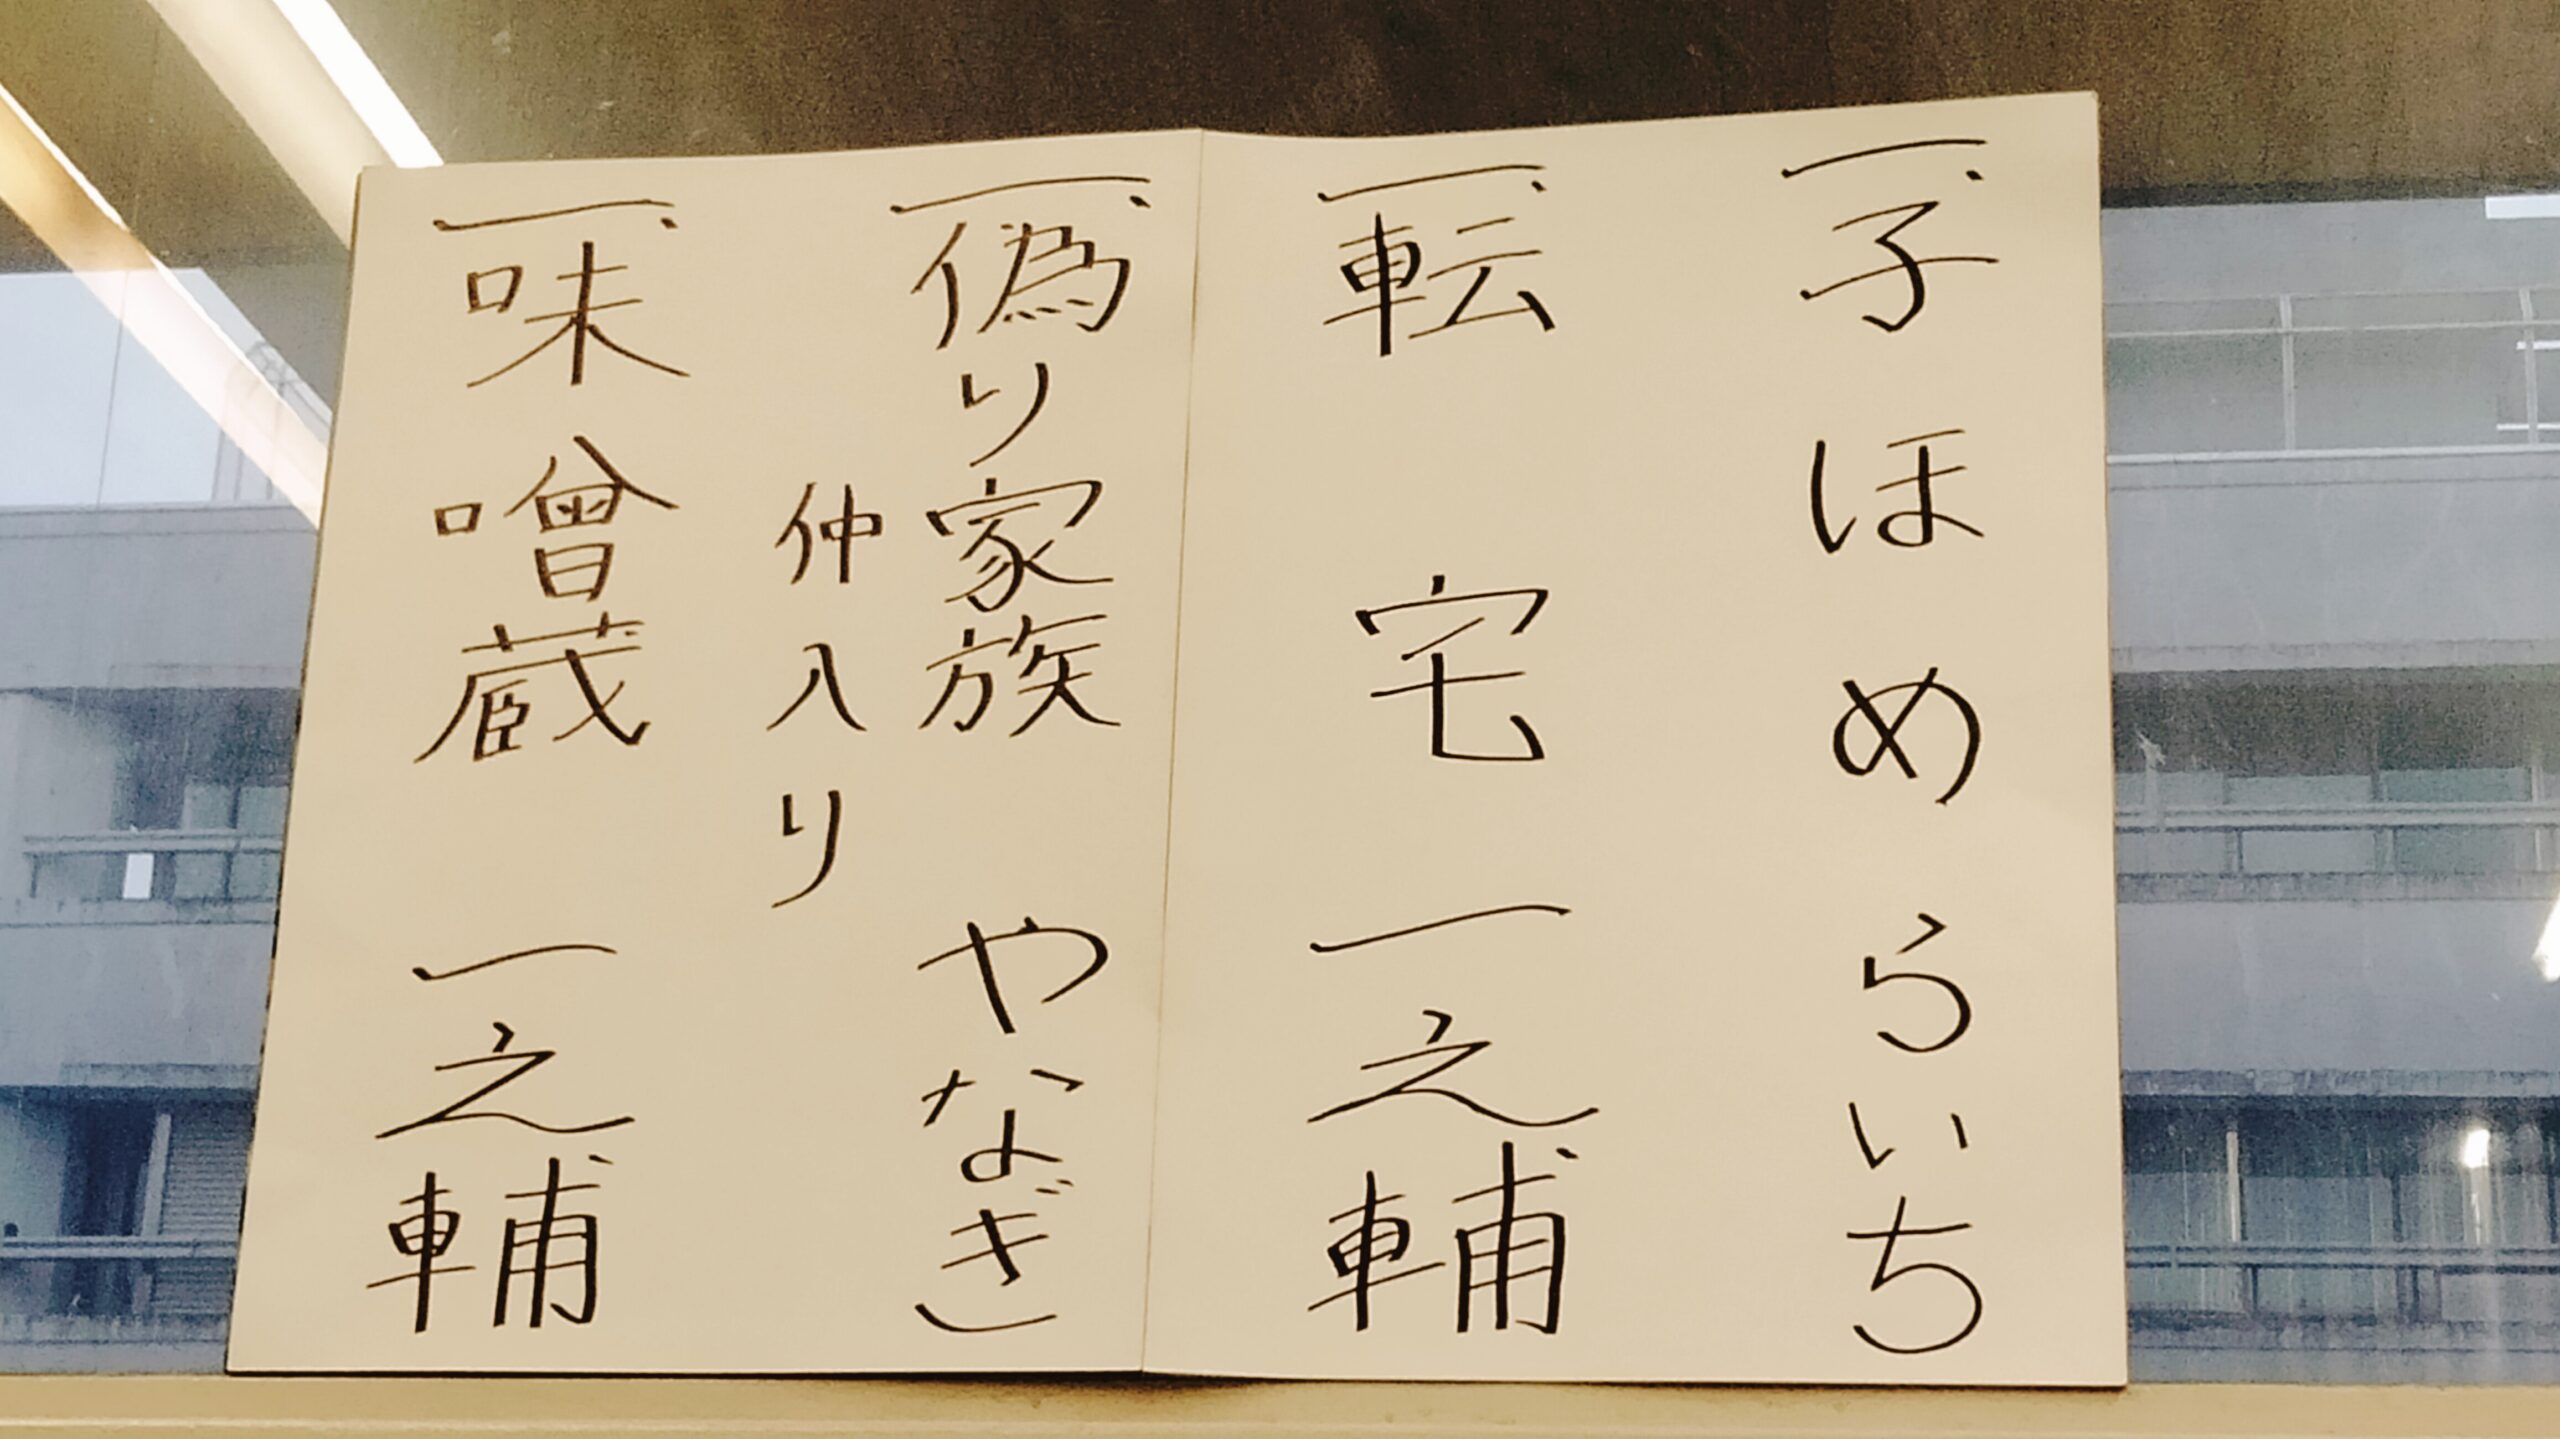 一、子ほめ らいち
一、転宅 一之輔
一、偽り家族 やなぎ
仲入り
一、味噌蔵 一之輔